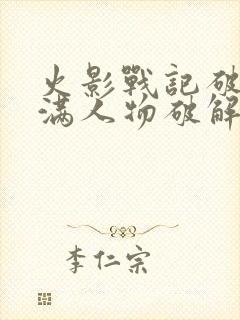 火影戰記破
滿人物破解
李仁宗